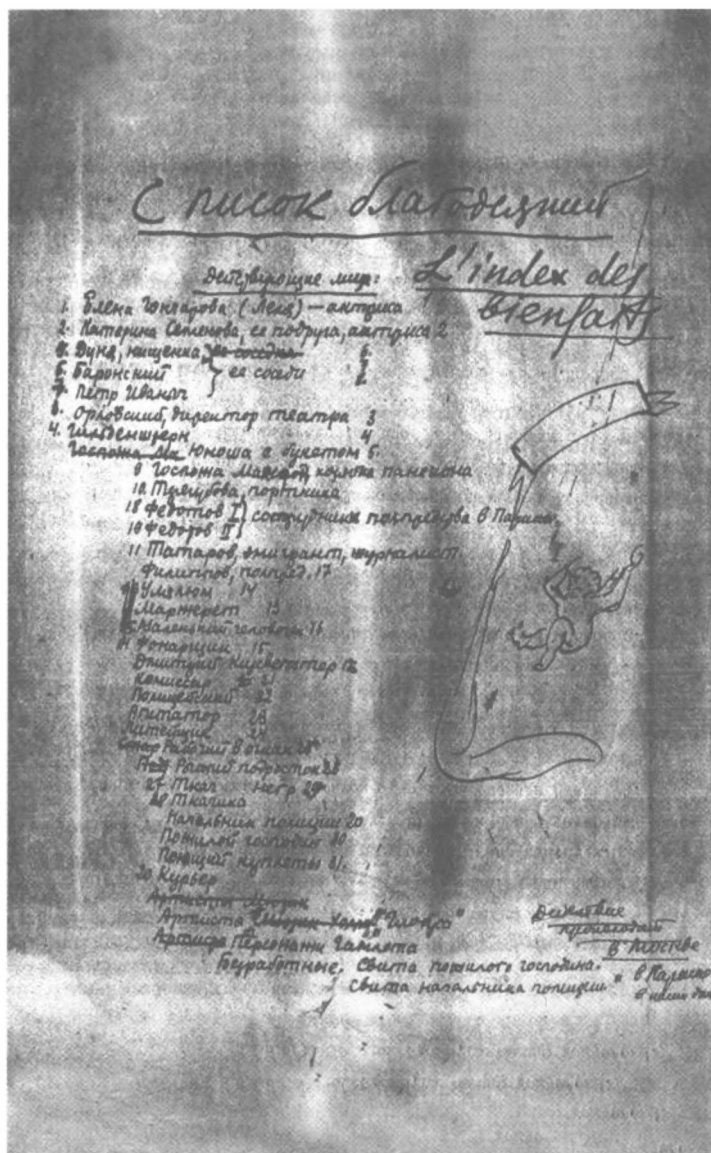 Список благодеяний
L'index des
bienfaits
Действующие лица:
1. Елена Гончарова (Леля) — актриса
2. Катерина Семенова, ее подруга, актриса 2
Дуня, нищенка, ее соседка 6.
6. Баронский } ее соседи
7. Петр Иваныч
8. Орловский, директор театра 3
4. Гильденштерн 4
Госпожа Юноша с букетом 5.
9 Госпожа хозяйка пансиона
10 Трегубова, портниха
18 Федотов I } сотрудники полпредства в Париже
19 Федоров II
11 Татаров, эмигрант, журналист
Филиппов, полпред, 17
Улялюм 14
Маржерет 13
Маленький человечек 16
Фонарщик 15
Дмитрий Кизеветтер 12
Комиссар 21
Полицейский 22
Агитатор 23
Литейщик 24
Рабочий в очках
подросток
27 Ткач негр
28 Ткачиха
Начальник полиции 20
Пожилой господин 30
Поющий куплеты 31.
Курьер
Артисты
Артисты "Глобус"
Персонажи Гамлета
Безработные. Свита пожилого господина.
Свита начальника полиции
Действие
происходит
в Москве
в Париже
в наши дни